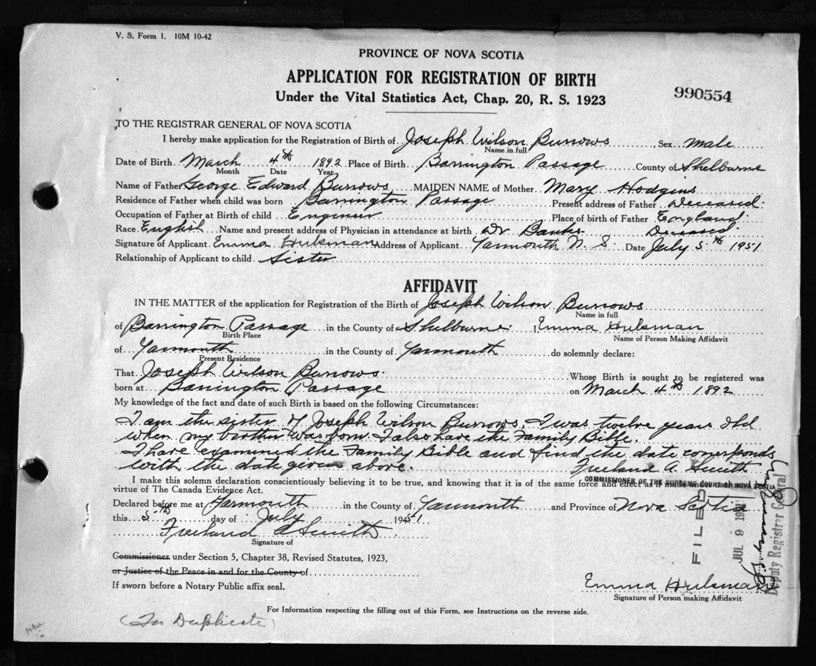 V. S. Form 1. 10M 10-42
PROVINCE OF NOVA SCOTIA
APPLICATION FOR REGISTRATION OF BIRTH
Under the Vital Statistics Act, Chap. 20, R. S. 1923
990554
TO THE REGISTRAR GENERAL OF NOVA SCOTIA
I hereby make application for the Registration of Birth of Joseph Wilson Burrows Sex male
Name in full
Date of Birth March 4th 1892 Place of Birth Barrington Passage County of Shelburne
Month Date Year
Name of Father George Edward Burrows MAIDEN NAME of Mother Mary Hodgins
Residence of Father when child was born Barrington Passage Present address of Father deceased
Occupation of Father at Birth of child Engineer Place of birth of Father England
Race English Name and present address of Physician in attendance at birth Dr Banks Deceased
Signature of Applicant Emma Hulsman Address of Applicant Yarmouth N. S. Date July 5th 1951
Relationship of Applicant to child Sister
AFFIDAVIT
IN THE MATTER of the application for Registration of the Birth of Joseph Wilson Burrows
Name in full
of Barrington Passage in the County of Shelburne I Emma Hulsman
Birth Place Name of Person Making Affidavit
of Yarmouth in the County of Yarmouth do solemnly declare:
Present Residence
That Joseph Wilson Burrows Whose Birth is sought to be registered was
born at Barrington Passage on March 4th 1892
My knowledge of the fact and date of such Birth is based on the following Circumstances:
I am the sister of Joseph Wilson Burrows. I was twelve years old
when my brother was born. I also have the Family Bible.
I have examined the Family Bible and find the date corresponds
with the date given above. Freeland A. Smith
COMMISSIONER OF THE SUPREME COURT OF NOVA SCOTIA
I make this solemn declaration conscientiously believing it to be true, and knowing that it is of the same force and effect as if made under oath and
virtue of The Canada Evidence Act.
Declared before me at Yarmouth in the County of Yarmouth and Province of Nova Scotia
this 5th day of July 1951
Freeland A Smith
Signature of
Commissioner under Section 5, Chapter 38, Revised Statutes, 1923,
or Justice of the Peace in and for the County of
If sworn before a Notary Public affix seal.
FILED
JUL 9 1951
Deputy Registrar General
Emma Hulsman
Signature of Person Making Affidavit
For Information respecting the filling out of this Form, see Instructions on the reverse side.
(In Duplicate)